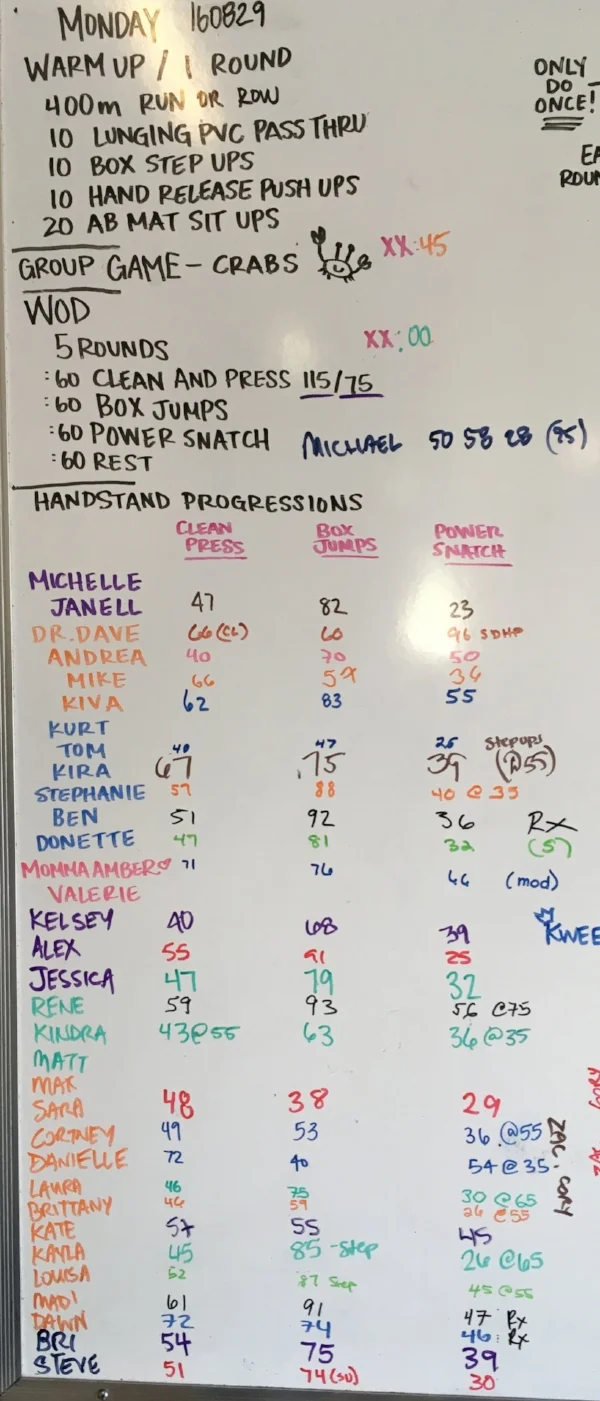 MONDAY 160829
WARM UP / 1 ROUND
400m RUN OR ROW
10 LUNGING PVC PASS THRU
10 BOX STEP UPS
10 HAND RELEASE PUSH UPS
20 AB MAT SIT UPS
ONLY
DO
ONCE!
EA
ROUN
GROUP GAME - CRABS XX:45
WOD
5 ROUNDS XX:00
:60 CLEAN AND PRESS 115/75
:60 BOX JUMPS
:60 POWER SNATCH MICHAEL 50 58 28 (95)
:60 REST
HANDSTAND PROGRESSIONS
CLEAN PRESS BOX JUMPS POWER SNATCH
MICHELLE
JANELL 47 82 23
DR. DAVE 66 (CL) 60 96 SDHP
ANDREA 40 70 50
MIKE 66 59 34
KIVA 62 83 55
KURT
TOM 40 47 25 Step ups
KIRA 67 75 39 (@55)
STEPHANIE 57 88 40 @ 35
BEN 51 92 36 Rx
DONETTE 47 81 32 (57)
MOMMA AMBER 71 76 46 (mod)
VALERIE
KELSEY 40 68 39 KWEE
ALEX 55 91 25
JESSICA 47 79 32
RENE 59 93 56 @75
KINDRA 43@55 63 36 @35
MATT
MAK
SARA 48 38 29
CORTNEY 49 53 36 @55
DANIELLE 72 40 54 @ 35
ZAC - CORY
LAURA 46 75 30 @65
BRITTANY 46 59 26 @55
KATE 57 55 45
KAYLA 45 85 - Step 26 @65
LOUISA 52 87 Step 45 @55
MADI 61 91 47 Rx
DAWN 72 74 46 Rx
BRI 54 75 39
STEVE 51 74 (SU) 30